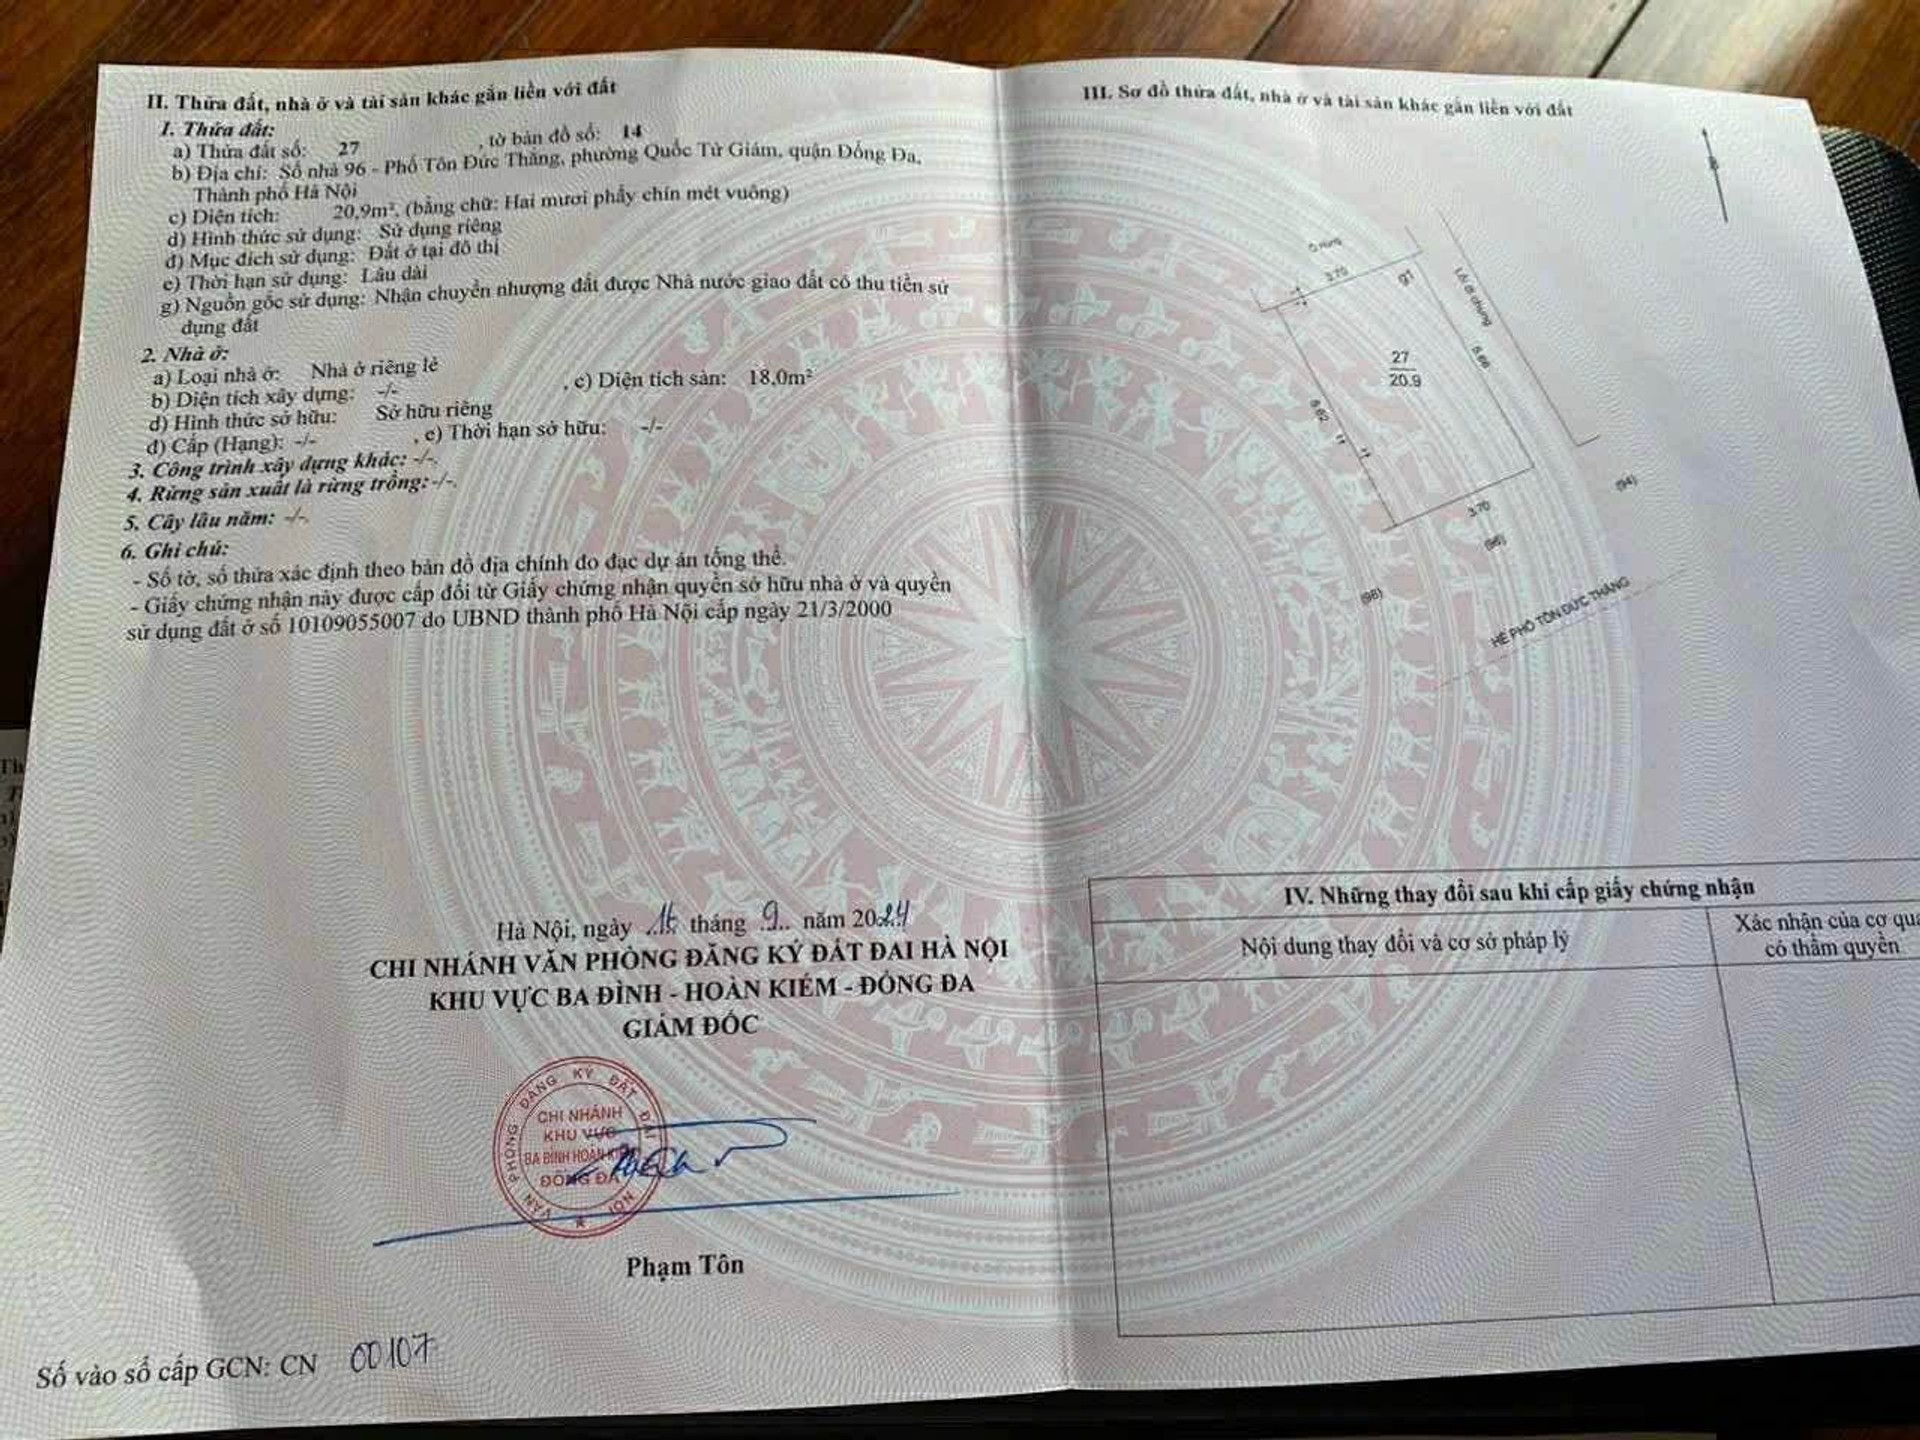 II. Thửa đất, nhà ở và tài sản khác gắn liền với đất
1. Thửa đất:
a) Thửa đất số: 27 , tờ bản đồ số: 14
b) Địa chỉ: Số nhà 96 - Phố Tôn Đức Thắng, phường Quốc Tử Giám, quận Đống Đa,
Thành phố Hà Nội
c) Diện tích: 20,9m², (bằng chữ: Hai mươi phẩy chín mét vuông)
d) Hình thức sử dụng: Sử dụng riêng
đ) Mục đích sử dụng: Đất ở tại đô thị
e) Thời hạn sử dụng: Lâu dài
g) Nguồn gốc sử dụng: Nhận chuyển nhượng đất được Nhà nước giao đất có thu tiền sử
dụng đất
2. Nhà ở:
a) Loại nhà ở: Nhà ở riêng lẻ
b) Diện tích xây dựng: -/- , c) Diện tích sàn: 18,0m²
d) Hình thức sở hữu: Sở hữu riêng
đ) Cấp (Hạng): -/- , e) Thời hạn sở hữu: -/-
3. Công trình xây dựng khác: -/-.
4. Rừng sản xuất là rừng trồng: -/-.
5. Cây lâu năm: -/-.
6. Ghi chú:
- Số tờ, số thửa xác định theo bản đồ địa chính đo đạc dự án tổng thể.
- Giấy chứng nhận này được cấp đổi từ Giấy chứng nhận quyền sở hữu nhà ở và quyền
sử dụng đất ở số 10109055007 do UBND thành phố Hà Nội cấp ngày 21/3/2000
Hà Nội, ngày 16 tháng 9 năm 2024
CHI NHÁNH VĂN PHÒNG ĐĂNG KÝ ĐẤT ĐAI HÀ NỘI
KHU VỰC BA ĐÌNH - HOÀN KIẾM - ĐỐNG ĐA
GIÁM ĐỐC
VĂN PHÒNG ĐĂNG KÝ ĐẤT ĐAI HÀ NỘI
CHI NHÁNH
KHU VỰC
BA ĐÌNH HOÀN KIẾM
ĐỐNG ĐA
Phạm Tôn
Số vào sổ cấp GCN: CN 00107
III. Sơ đồ thửa đất, nhà ở và tài sản khác gắn liền với đất
3.70
g1
Lối đi chung
27
20.9
5.66
5.62
3.70
(94)
(96)
(98)
HÈ PHỐ TÔN ĐỨC THẮNG
IV. Những thay đổi sau khi cấp giấy chứng nhận
Nội dung thay đổi và cơ sở pháp lý
Xác nhận của cơ qua
có thẩm quyền